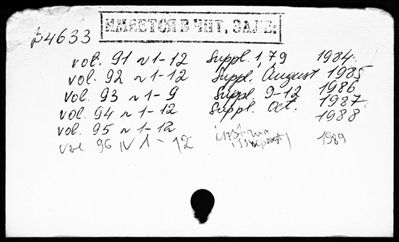 ИМЕЕТСЯ В ЧИТ. ЗАЛЕ
β4633
vol. 91 N 1-12 Suppl. 1,79 1984
vol. 92 N 1-12 Suppl. August 1985
vol. 93 N 1-9 Suppl. 9-12 1986
vol. 94 N 1-12 Suppl. Oct. 1987
vol. 95 N 1-12 1988
vol 96 N 1-12 1989